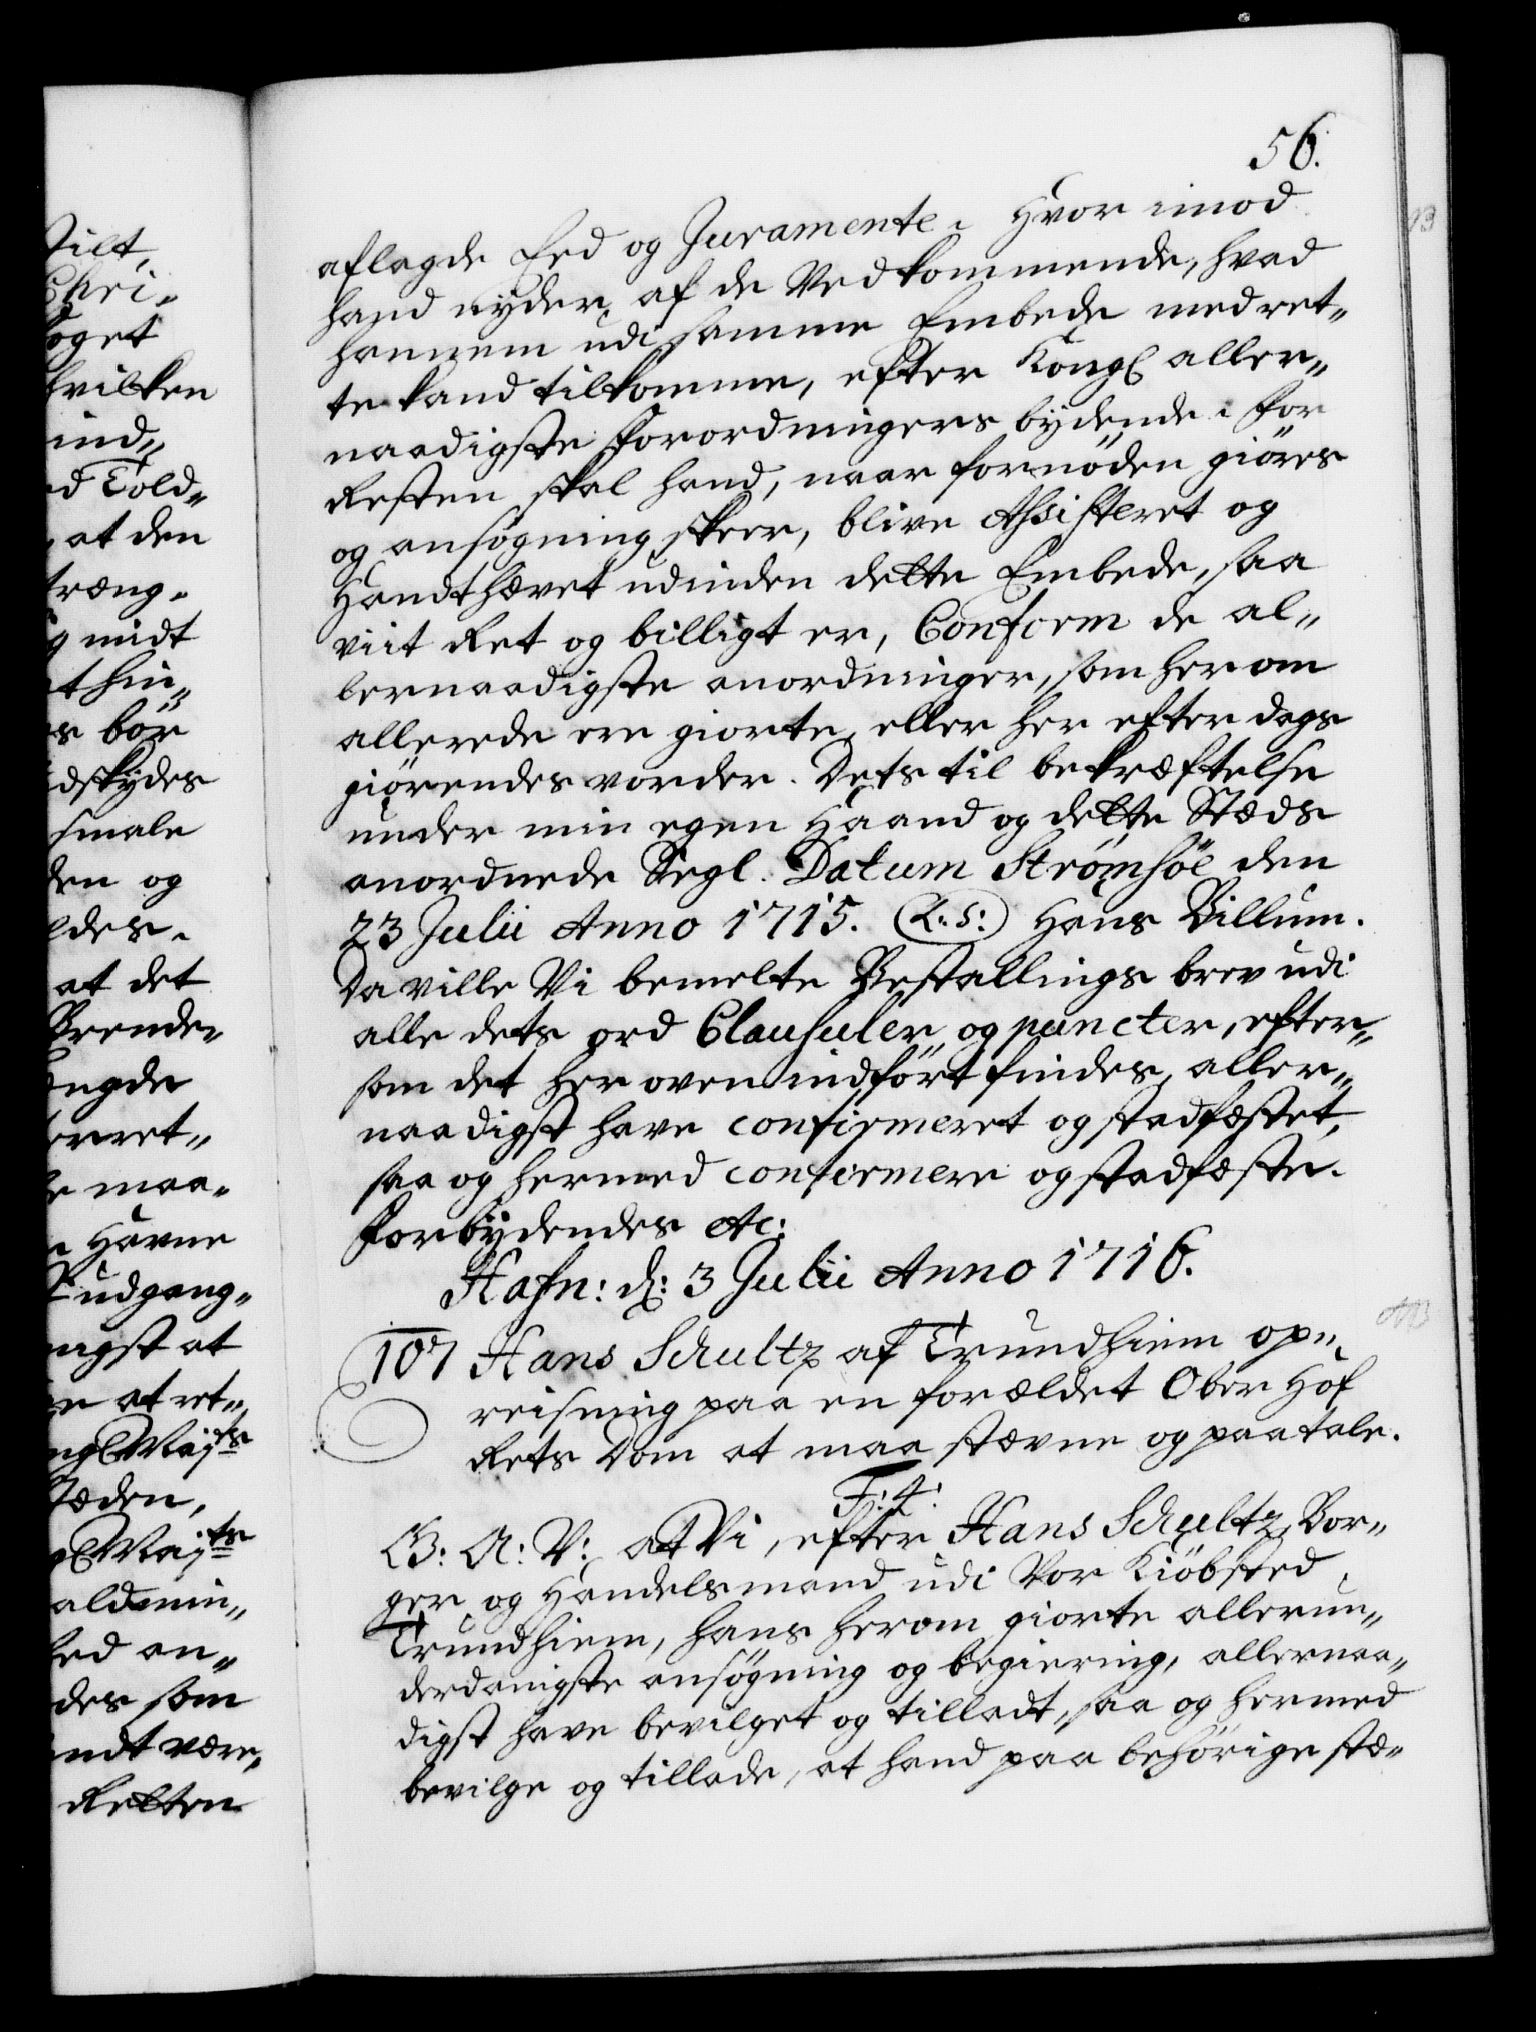 56.
aflagde Eed og Juramente. Hvor imod
hand nyder af de Vedkommende, hvad
hannem udi samme Embede med ret„
te kand tilkomme, efter Kongl aller„
naadigste Forordningers bydende. For
Resten skal hand, naar fornöden giöres
og ansøgning skeer, blive Assisteret og
Handthævet udinden dette Embede, saa
viit Ret og billigt er, Conform de al„
lernaadigste anordninger, som her om
allerede ere giorte, eller her efter dags
giörendes vorder. Dets til bekræftelse
under min egen Haand og dette Stæds
anordnede Segl. Datum Strømsöe den
23 Julii Anno 1715. (L:S:) Hans Billum.
Da ville Vi bemelte Bestallings brev udi
alle dets ord Clausuler og puncter, efter„
som det her oven indført findes, aller„
naadigst have confirmeret og stadfæstet,
saa og hermed confirmere og stadfæste.
Forbydendes etc:
Hafn: d: 3 Julii Anno 1716.
107 Hans Schultz af Trundhiem op„
reisning paa en forældet Ober Hof
Rets Dom at maa stævne og paatale.
F: 4:
G: A: V: at Vi, efter Hans Schultz, Bor„
ger og Handelsmand udi Vor Kiöbsted
Trundhiem, hans herom giorte allerun„
derdanigste ansøgning og begiering, allernaa„
digst have bevilget og tilladt, saa og hermed
bevilge og tillade, at hand paa behørige stæ„
tilt,
Chri„
öget
hvilken
ind„
d Told„
at den
træng„
g midt
t hin„
s bör
dskydes
smale
den og
ldes.
at det
Brende„
engde
erret„
e maa„
Havne
udgang„
ngst at
en at ret„
ngl Majts
tæden,
gl Majts
aldmin„
ed an„
des som
ndt være,
Retten